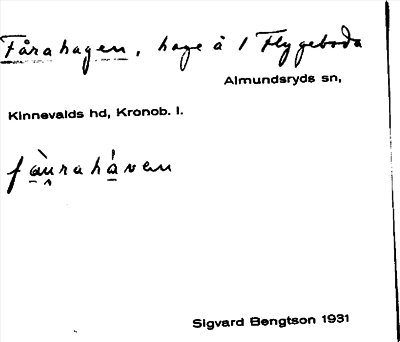 Fårahagen, hage å 1 Flygeboda
Almundsryds sn,
Kinnevalds hd, Kronob. l.
fàu̯rahá̱ven
Sigvard Bengtson 1931